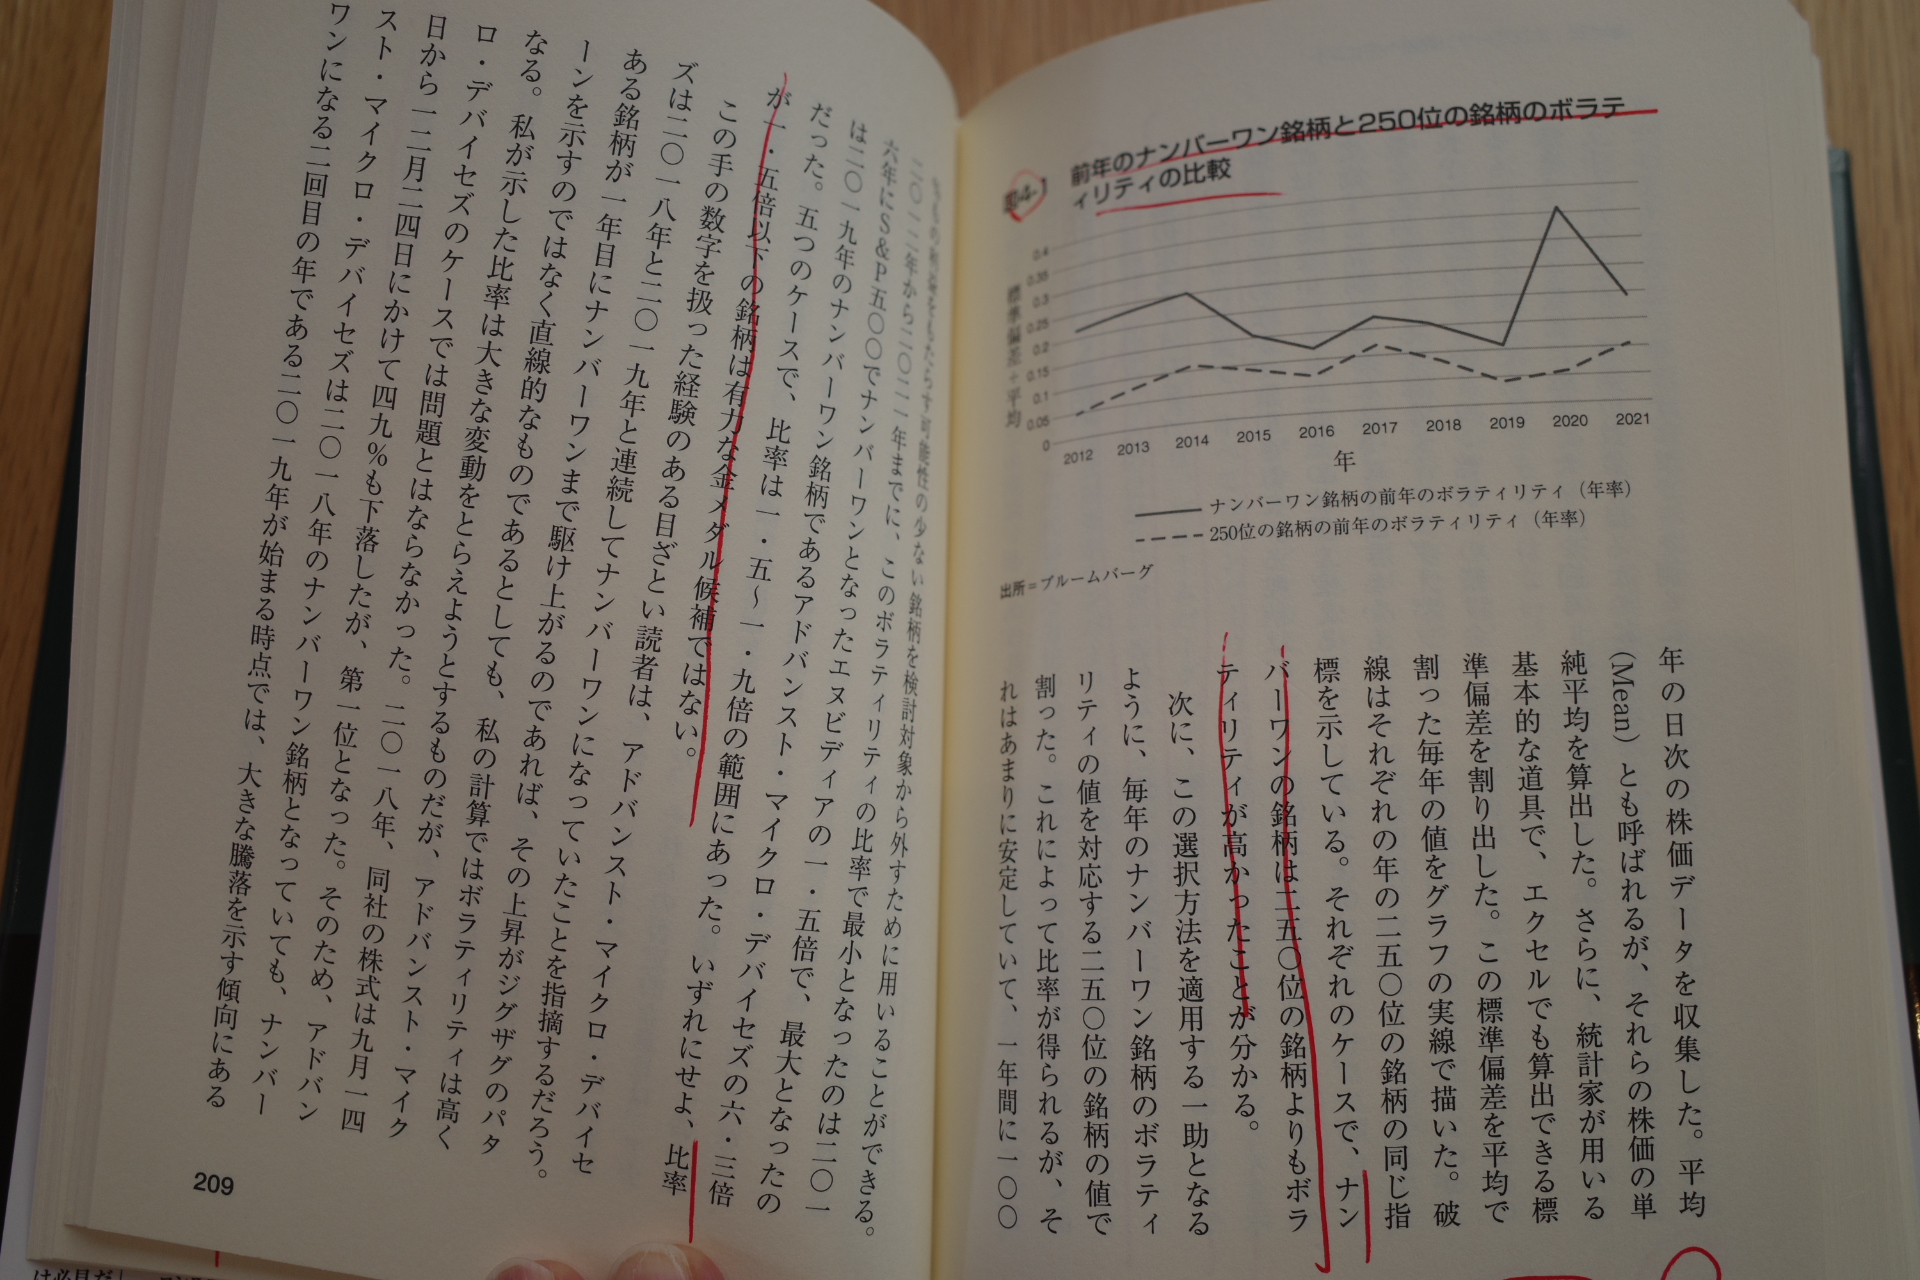 図4-1
前年のナンバーワン銘柄と250位の銘柄のボラテ
ィリティの比較
標準偏差÷平均
0.4
0.35
0.3
0.25
0.2
0.15
0.1
0.05
0
2012 2013 2014 2015 2016 2017 2018 2019 2020 2021
年
ナンバーワン銘柄の前年のボラティリティ（年率）
250位の銘柄の前年のボラティリティ（年率）
出所＝ブルームバーグ
年の日次の株価データを収集した。平均
（Mean）とも呼ばれるが、それらの株価の単
純平均を算出した。さらに、統計家が用いる
基本的な道具で、エクセルでも算出できる標
準偏差を割り出した。この標準偏差を平均で
割った毎年の値をグラフの実線で描いた。破
線はそれぞれの年の二五〇位の銘柄の同じ指
標を示している。それぞれのケースで、ナン
バーワンの銘柄は二五〇位の銘柄よりもボラ
ティリティが高かったことが分かる。
次に、この選択方法を適用する一助となる
ように、毎年のナンバーワン銘柄のボラティ
リティの値を対応する二五〇位の銘柄の値で
割った。これによって比率が得られるが、そ
れはあまりに安定していて、一年間に一〇〇
可能性の少ない銘柄を検討対象から外すために用いることができる。
二〇一二年から二〇二一年までに、このボラティリティの比率で最小となったのは二〇一
六年にS&P五〇〇でナンバーワンとなったエヌビディアの一・五倍で、最大となったの
は二〇一九年のナンバーワン銘柄であるアドバンスト・マイクロ・デバイセズの六・三倍
だった。五つのケースで、比率は一・五～一・九倍の範囲にあった。いずれにせよ、比率
が一・五倍以下の銘柄は有力な金メダル候補ではない。
この手の数字を扱った経験のある目ざとい読者は、アドバンスト・マイクロ・デバイセ
ズは二〇一八年と二〇一九年と連続してナンバーワンになっていたことを指摘するだろう。
ある銘柄が一年目にナンバーワンまで駆け上がるのであれば、その上昇がジグザグのパタ
ーンを示すのではなく直線的なものであるとしても、私の計算ではボラティリティは高く
なる。私が示した比率は大きな変動をとらえようとするものだが、アドバンスト・マイク
ロ・デバイセズのケースでは問題とはならなかった。二〇一八年、同社の株式は九月一四
日から一二月二四日にかけて四九％も下落したが、第一位となった。そのため、アドバン
スト・マイクロ・デバイセズは二〇一八年のナンバーワン銘柄となっていても、ナンバー
ワンになる二回目の年である二〇一九年が始まる時点では、大きな騰落を示す傾向にある
209